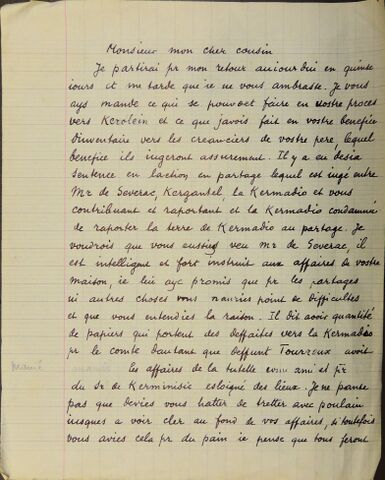 Monsieur mon cher cousin
Je partirai pr mon retour auiourdui en quinse
iours it me tarde que ie ne vous ambrasse. Je vous
ays mande ce qui se pouvoet faire en vostre proces
vers Kerolein et ce que javois fait en vostre benefice
d'inventaire vers les creanciers de vostre pere, lequel
benefice ils iugeront assurement. Il y a eu desia
sentence en laction en partage lequel est iugé entre
Mr de Severac, Kergantel, la Kermadio et vous
contribuant et raportant et la Kermadio condamné
de raporter la terre de Kermadio au partage. Je
voudrois que vous eussiez veu Mr de Severac, il
est intelligent et fort instruit aux affaires de vostre
maison, ie lui ayc promis que pr les partages
ni autres choses vous nauriés point de difficultes
et que vous entendiés la raison. Il dit avoir quantité
de papiers qui portent des deffaites vers la Kermadio
pr le comte dautant que deffunt Tourzoux avoit
les affaires de la tutelle ami et pr
du Sr de Kerminisie esloigné des lieux. Je ne panse
pas que devies vous hatter de tretter avec poulain
iusques a voir cler au fond de vos affaires, si toutefois
vous aviés cela pr du pain ie pense que tous feront